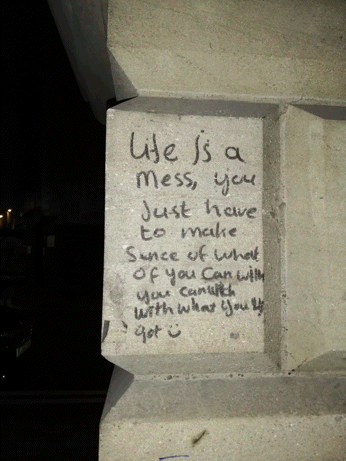 Life is a
mess, you
Just have
to make
Sence of what
of you Can with
you canwith
with what you
got